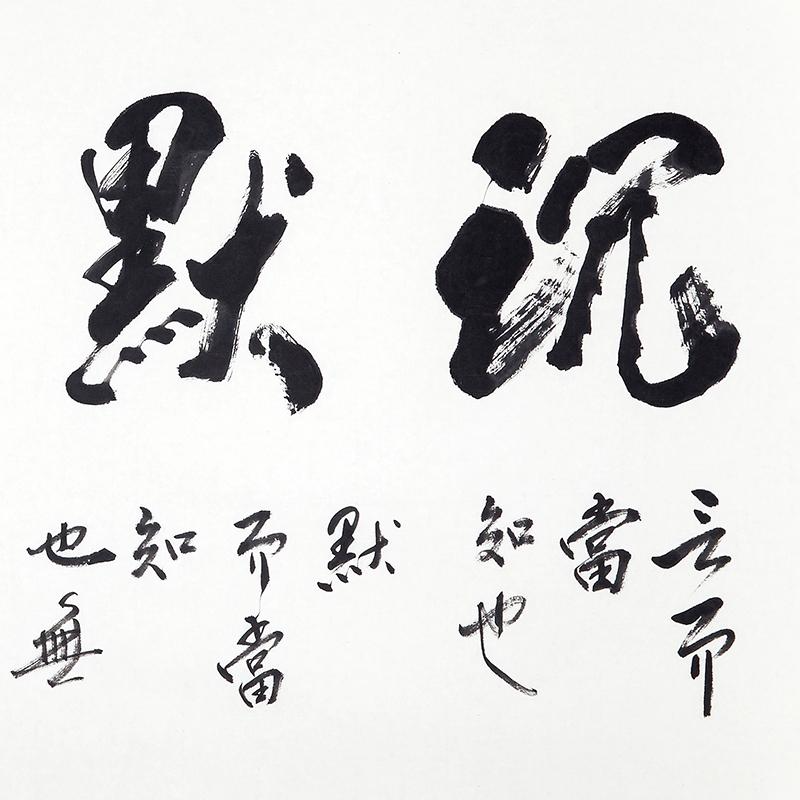 沉默
言而
當
知也
默
而當
知
也無